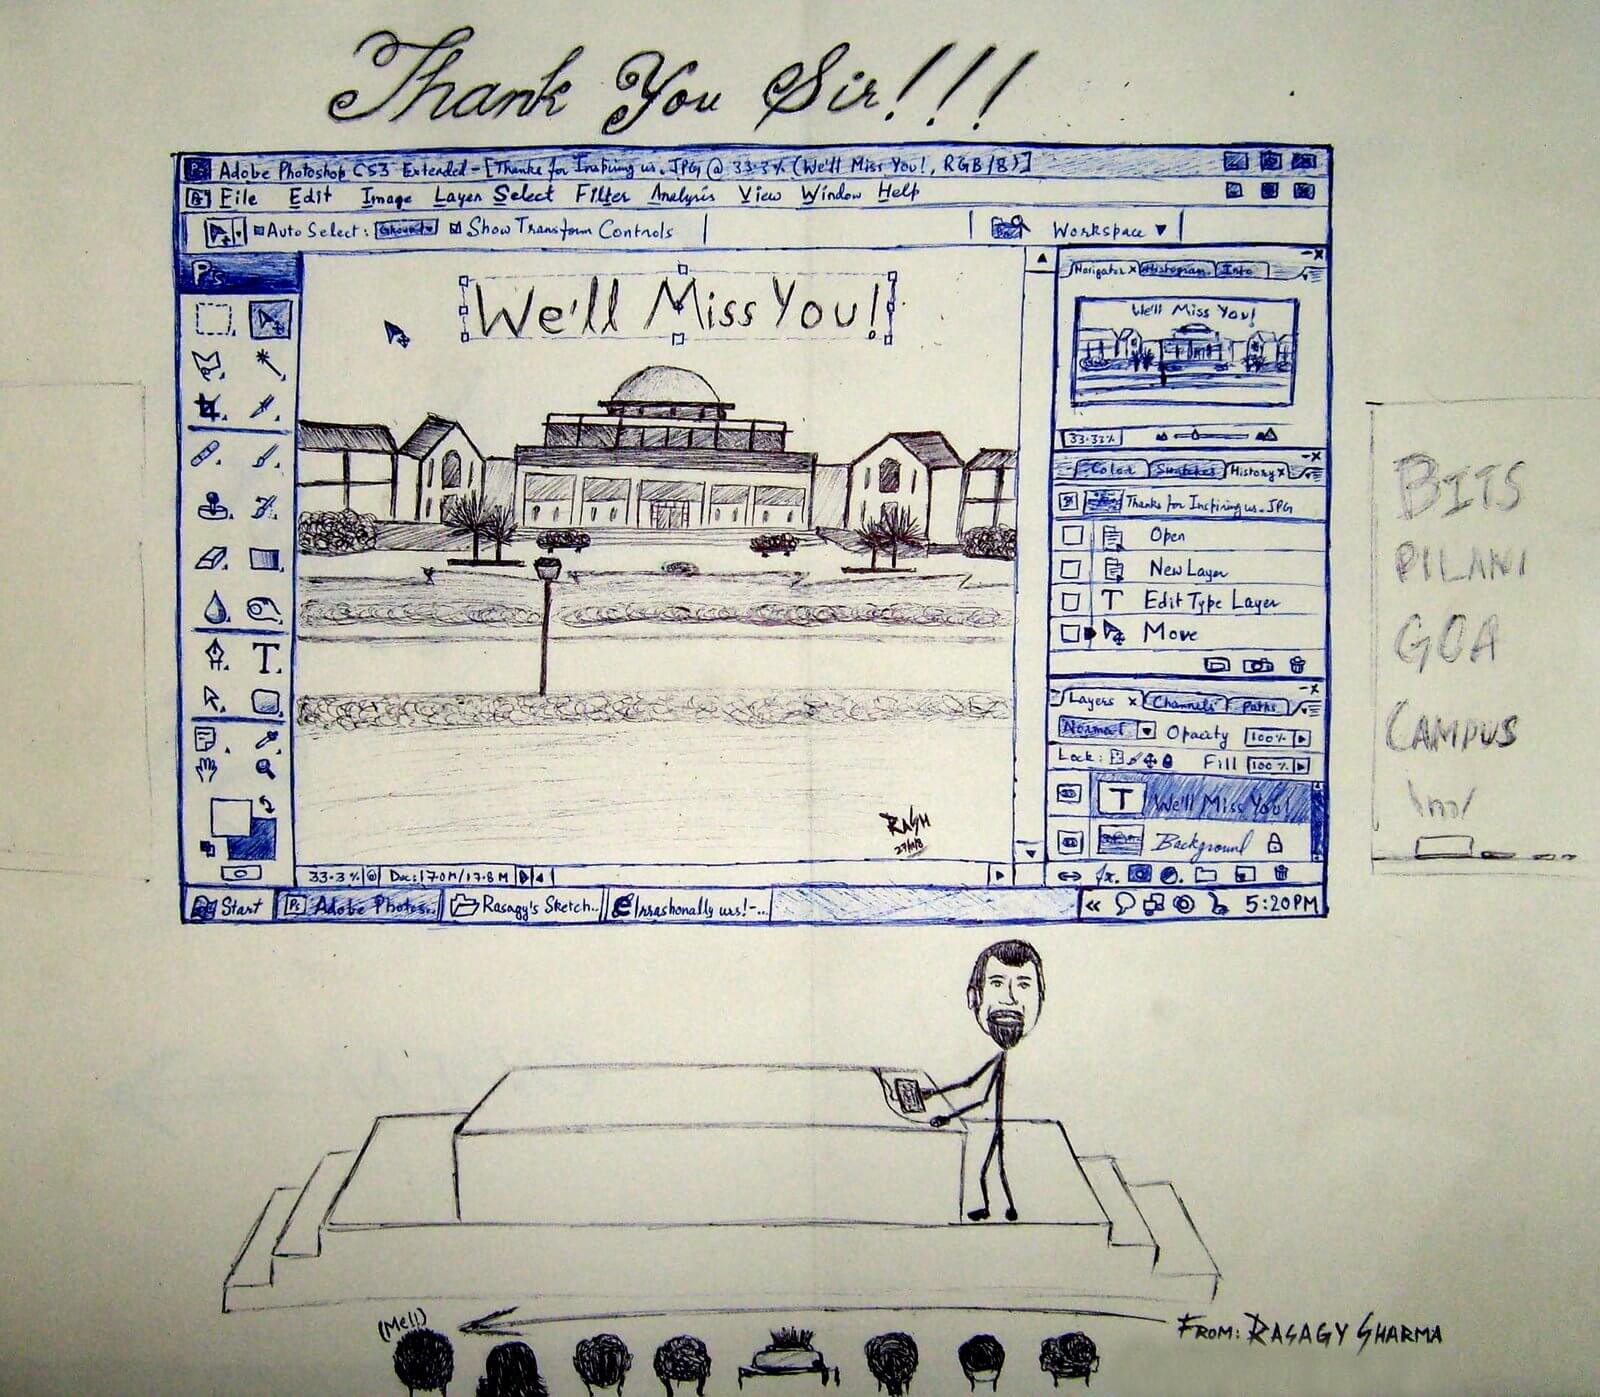 Thank You Sir!!!
Adobe Photoshop CS3 Extended - [Thanks for Inspiring us.JPG @ 33.3% (We'll Miss You!, RGB/8)]
File Edit Image Layer Select Filter Analysis View Window Help
Auto Select: Group Show Transform Controls Workspace
Ps
We'll Miss You!
Navigator x Histogram Info
We'll Miss You!
33.33%
Color Swatches History x
Thanks for Inspiring us.JPG
Open
New Layer
T Edit Type Layer
Move
Layers x Channels Paths
Normal Opacity 100%
Lock: Fill 100%
T We'll Miss You!
Background
fx.
T
RASH
33.3% Doc: 17.0M/17.8M
Start Ps Adobe Photos.. Rasagy's Sketch.. Inrashonally urs!-...
« 5:20PM
BITS
PILANI
GOA
CAMPUS
(Me!!)
FROM: RASAGY SHARMA